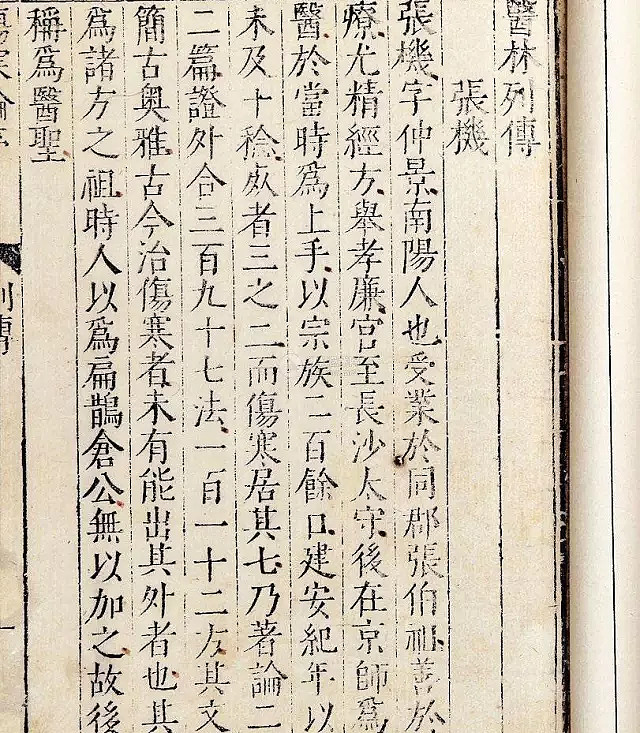 醫林列傳
張機
張機字仲景南陽人也受業於同郡張伯祖善於
療尤精經方舉孝廉官至長沙太守後在京師爲
醫於當時爲上手以宗族二百餘口建安紀年以
未及十稔死者三之二而傷寒居其七乃著論二
二篇證外合三百九十七法一百一十二方其文
簡古奥雅古今治傷寒者未有能出其外者也其
爲諸方之祖時人以爲扁鵲倉公無以加之故後
稱爲醫聖
傷寒論
列傳
一